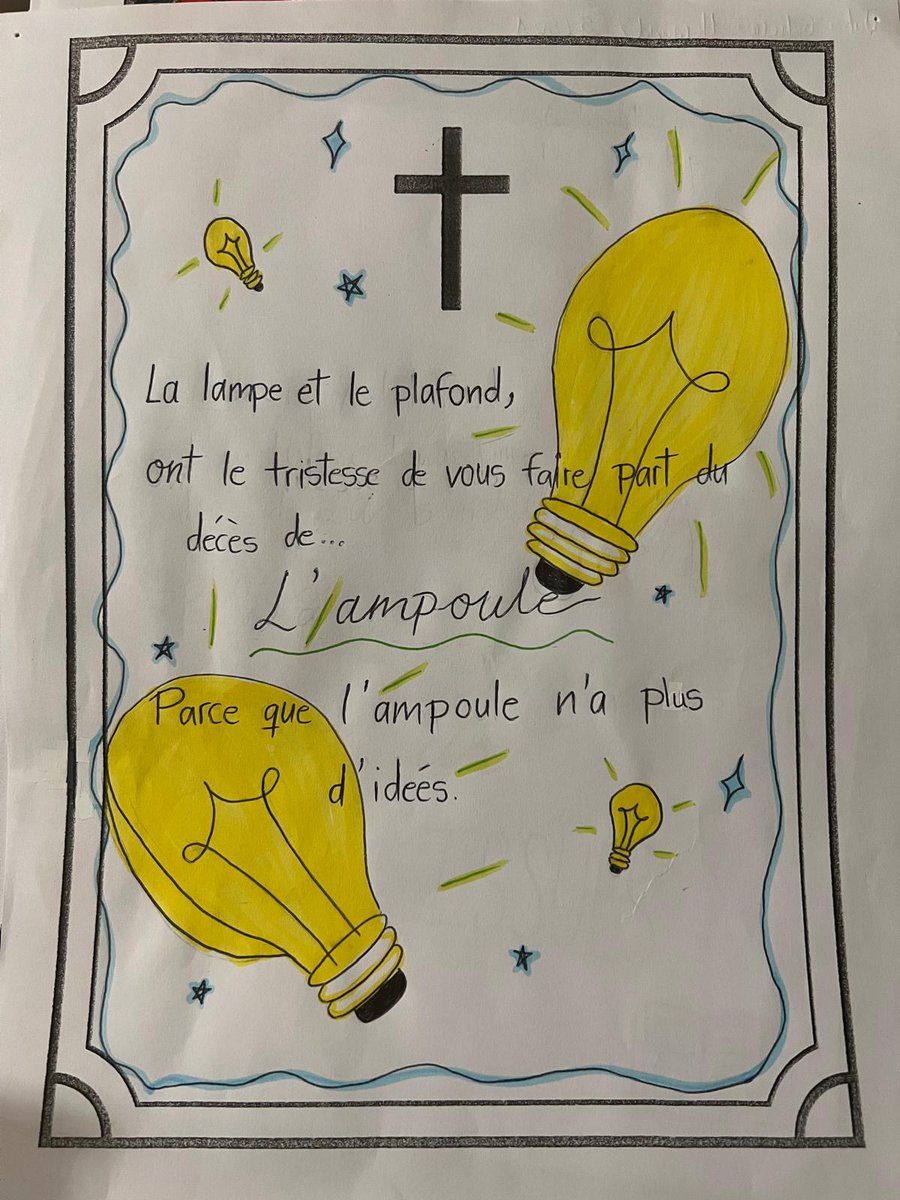 La lampe et le plafond,
ont le tristesse de vous faire part du
décès de...
L'ampoule
Parce que l'ampoule n'a plus
d'ideés.